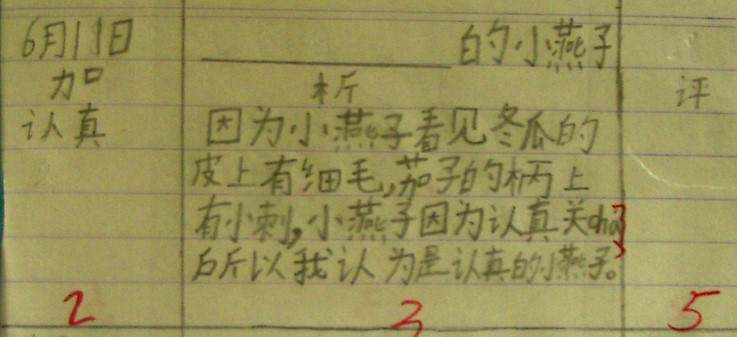 6月11日
加
认真
2
__________的小燕子
析
因为小燕子看见冬瓜的
皮上有细毛,茄子的柄上
有小刺,小燕子因为认真关cha
所以我认为是认真的小燕子。
3
评
5